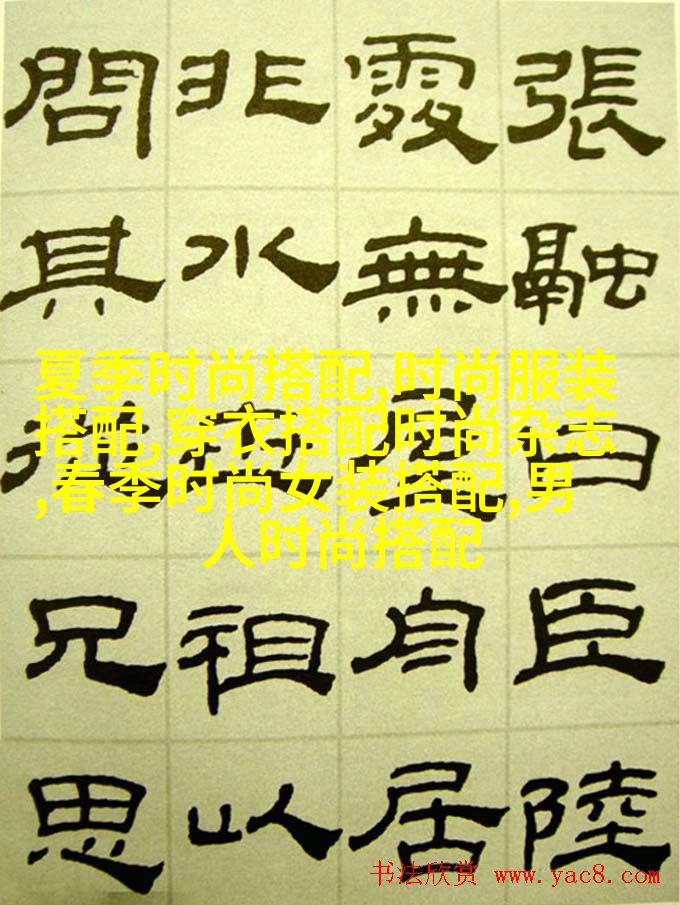 張融曰臣陸
處無屋舟居
非水祖以
問其從兄思
夏季时尚搭配,时尚服装
搭配,穿衣搭配时尚杂志
,春季时尚女装搭配,男
人时尚搭配
书法欣赏 www.yac8.com